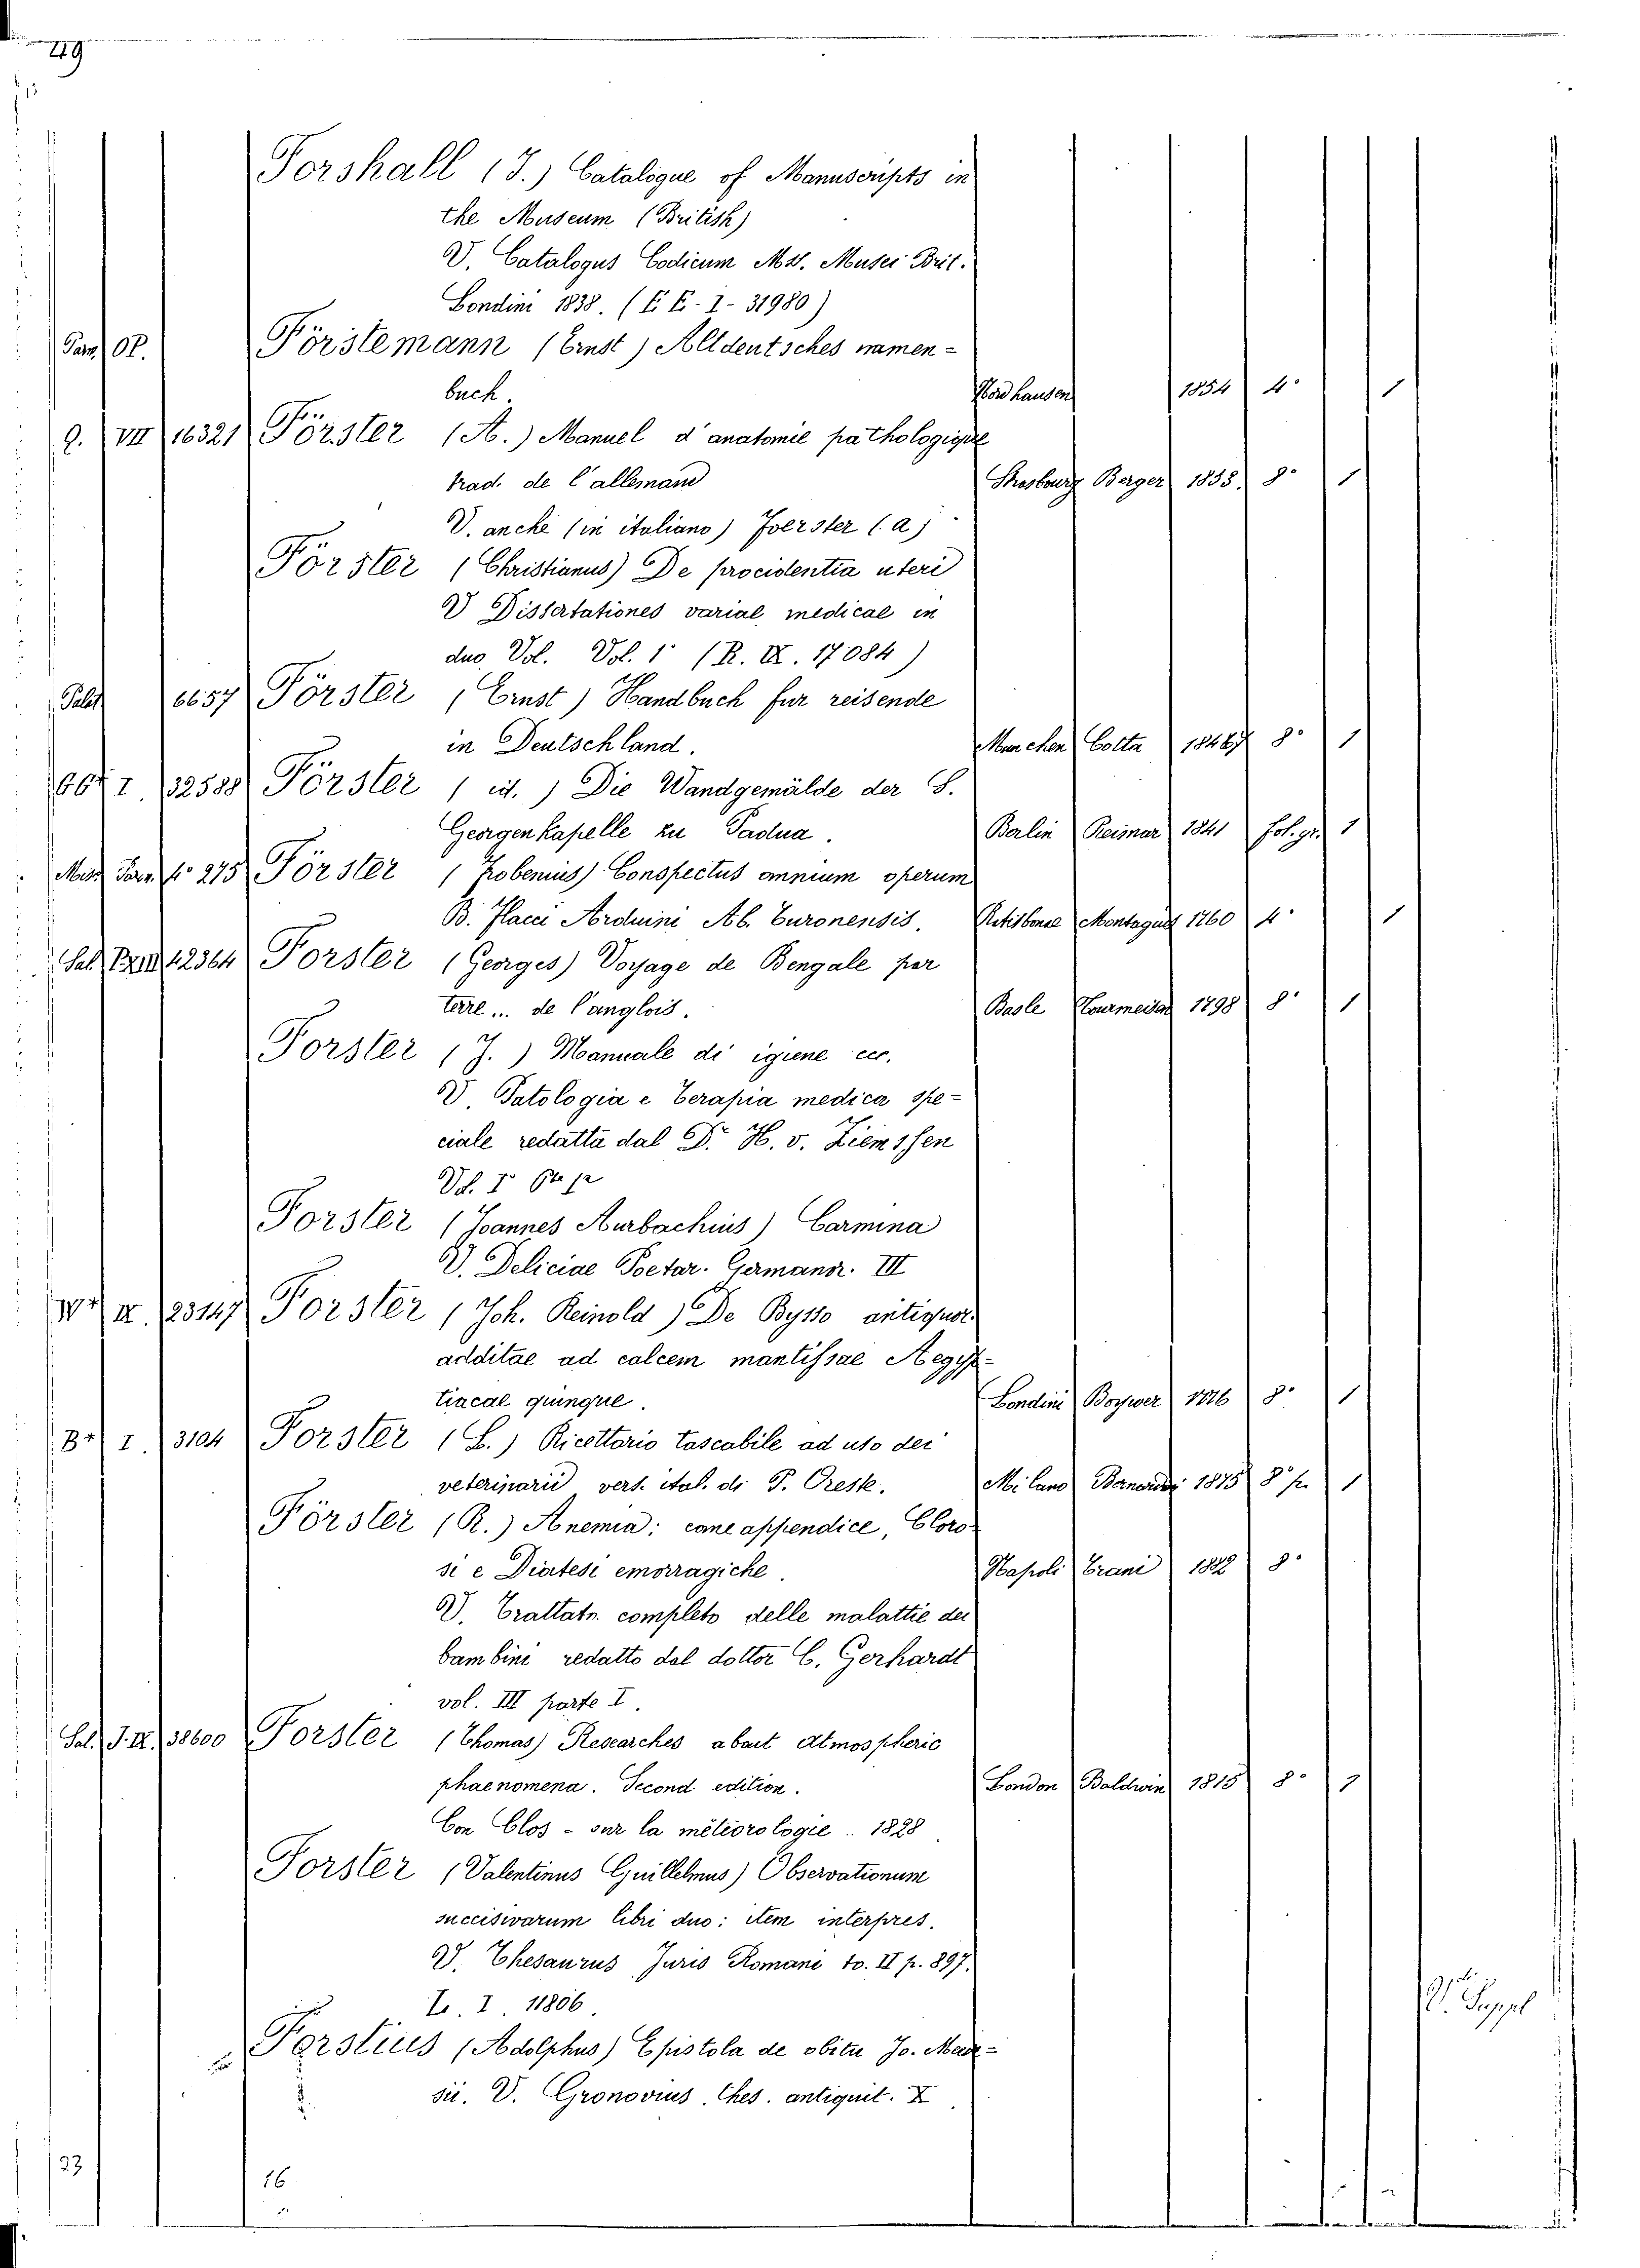 49
Forshall (J.) Catalogue of Manuscripts in
the Museum (British)
V. Catalogus Codicum Mss. Musei Brit.
Londini 1838. (E E - I - 31980)
OP. Förstemann (Ernst) Altdeutsches namen=
buch. Nordhausen 1854 4° 1
Q. VII 16321 Förster (A.) Manuel d'anatomie pathologique
trad. de l'allemand Strasbourg Berger 1853 8° 1
V. anche (in italiano) Foerster (A)
Förster (Christianus) De procidentia uteri
V Dissertationes variae medicae in
duo Vol. Vol. 1° (R. IX. 17084)
6657 Förster (Ernst) Handbuch fur reisende
in Deutschland. Munchen Cotta 1847 8° 1
I. 32588 Förster (id.) Die Wandgemälde der S.
Georgenkapelle zu Padua. Berlin Reimar 1841 fol. gr. 1
275 Förster (Frobenius) Conspectus omnium operum
B. Flacci Arduini Ab. Euronensis. Ratisbonae Montagus 1760 4° 1
Sal. 42364 Forster (Georges) Voyage de Bengale par
terre... de l'anglois. Basle Tourmeisen 1798 8° 1
Forster (J.) Manuale di igiene ecc.
V. Patologia e Terapia medica spe=
ciale redatta dal Dr. H. v. Ziemssen
Vol. I°
Forster (Joannes Aurbachius) Carmina
V. Deliciae Poetar. Germanor. III
IX. 23147 Forster (Joh. Reinold) De Bysso antiquor.
additae ad calcem mantissae Aegyp=
tiacae quinque. Londini Boywer 1776 8° 1
B I. 3104 Forster (L.) Ricettario tascabile ad uso dei
veterinarii vers. ital. di P. Oreste. Milano Bernardoni 1875 8° p. 1
Förster (R.) Anemia; come appendice, Cloro=
si e Diatesi emorragiche. Napoli Trani 1882 8°
V. Trattato completo delle malattie dei
bambini redatto dal dottor C. Gerhardt
vol. III parte I.
Sal. J. IX. 38600 Forster (Thomas) Researches about Atmospheric
phaenomena. Second edition. London Baldwin 1815 8° 1
Con Clos - sur la météorologie.. 1828
Forster (Valentinus Guillelmus) Observationum
succisivarum libri duo: item interpres.
V. Thesaurus Juris Romani to. II p. 897.
I. 11806.
V. Suppl
Forstius (Adolphus) Epistola de obitu Jo. Meur=
sii. V. Gronovius. Thes. antiquit. X.
23
16